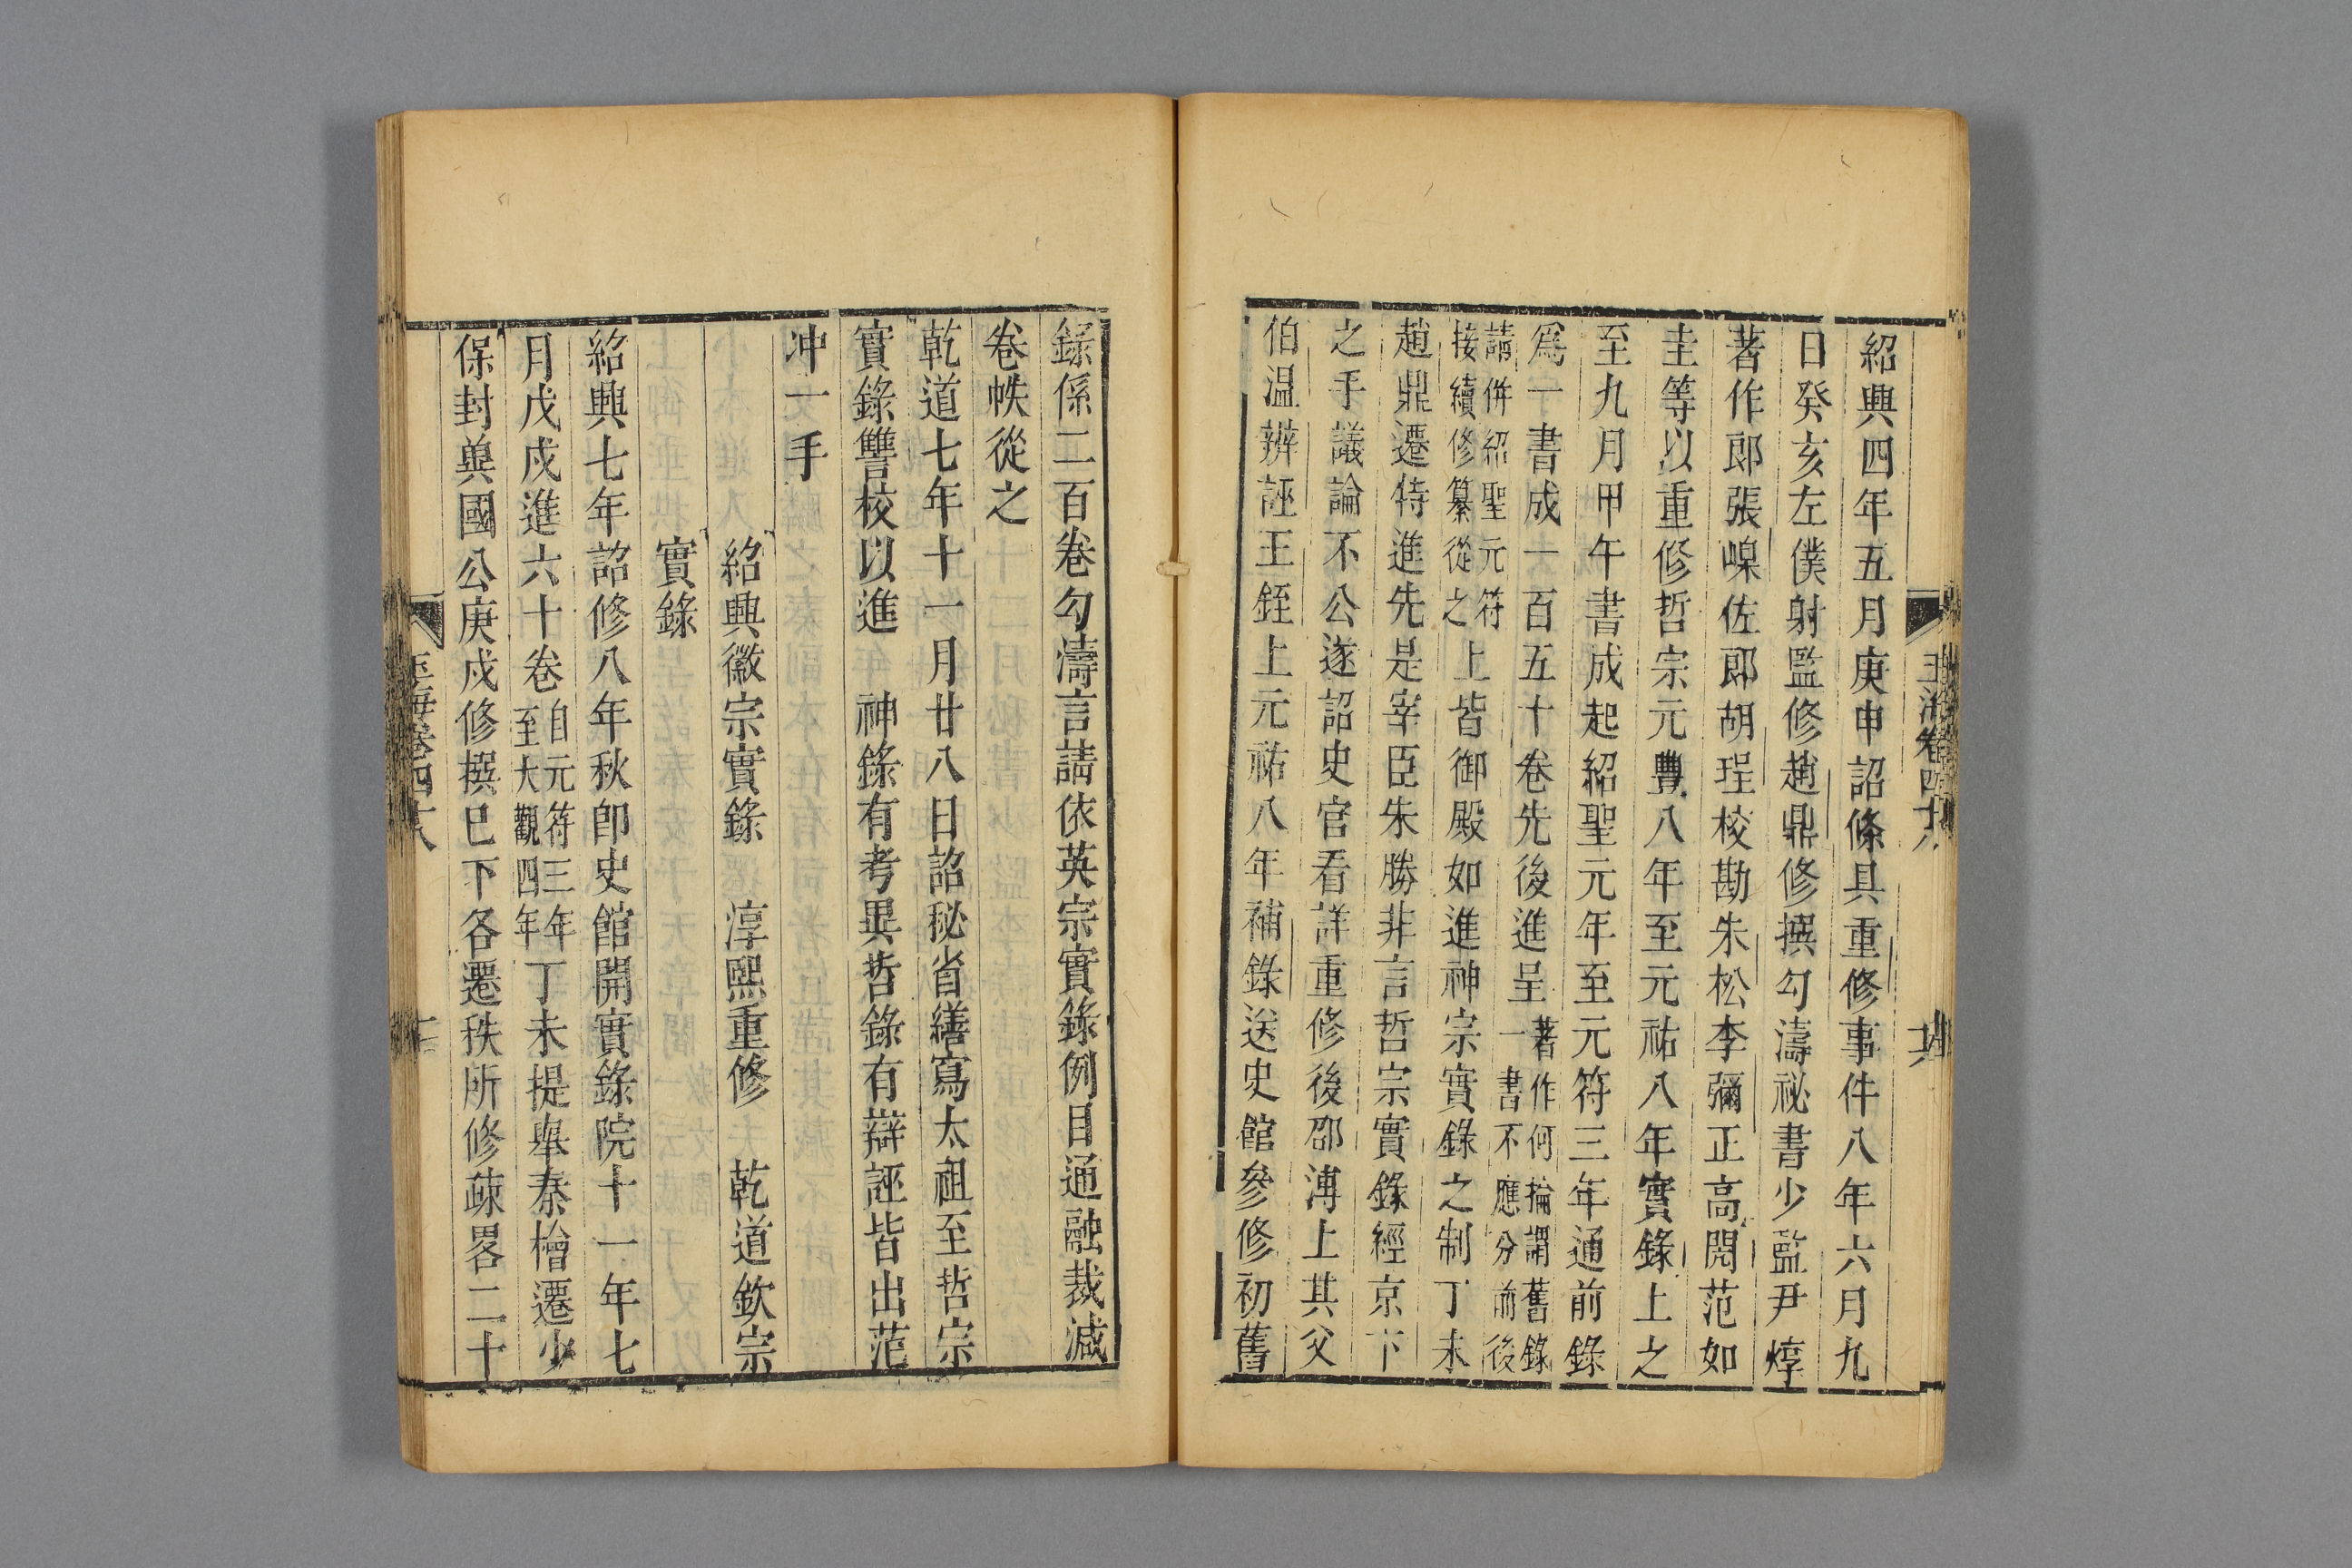 紹興四年五月庚申詔條具重修事件八年六月九
日癸亥左僕射監修趙鼎修撰勾濤祕書少監尹焞
著作郎張嵲佐郎胡珵校勘朱松李彌正高閌范如
圭等以重修哲宗元豐八年至元祐八年實錄上之
至九月甲午書成起紹聖元年至元符三年通前錄
爲一書成一百五十卷先後進呈著作何掄謂舊錄
一書不應分前後
請併紹聖元符
接續修纂從之上皆御殿如進神宗實錄之制丁未
趙鼎遷特進先是宰臣朱勝非言哲宗實錄經京卞
之手議論不公遂詔史官看詳重修後邵溥上其父
伯溫辨誣王銍上元祐八年補錄送史館參修初舊
玉海卷四十八
錄係二百卷勾濤言請依英宗實錄例目通融裁減
卷帙從之
乾道七年十一月廿八日詔秘省繕寫太祖至哲宗
實錄讐校以進 神錄有考異哲錄有辯誣皆出范
冲一手
紹興徽宗實錄 淳熙重修 乾道欽宗
實錄
紹興七年詔修八年秋卽史館開實錄院十一年七
月戊戌進六十卷自元符三年
至大觀四年丁未提舉秦檜遷少
保封冀國公庚戌修撰巳下各遷秩所修疎畧二十
玉海卷四十八